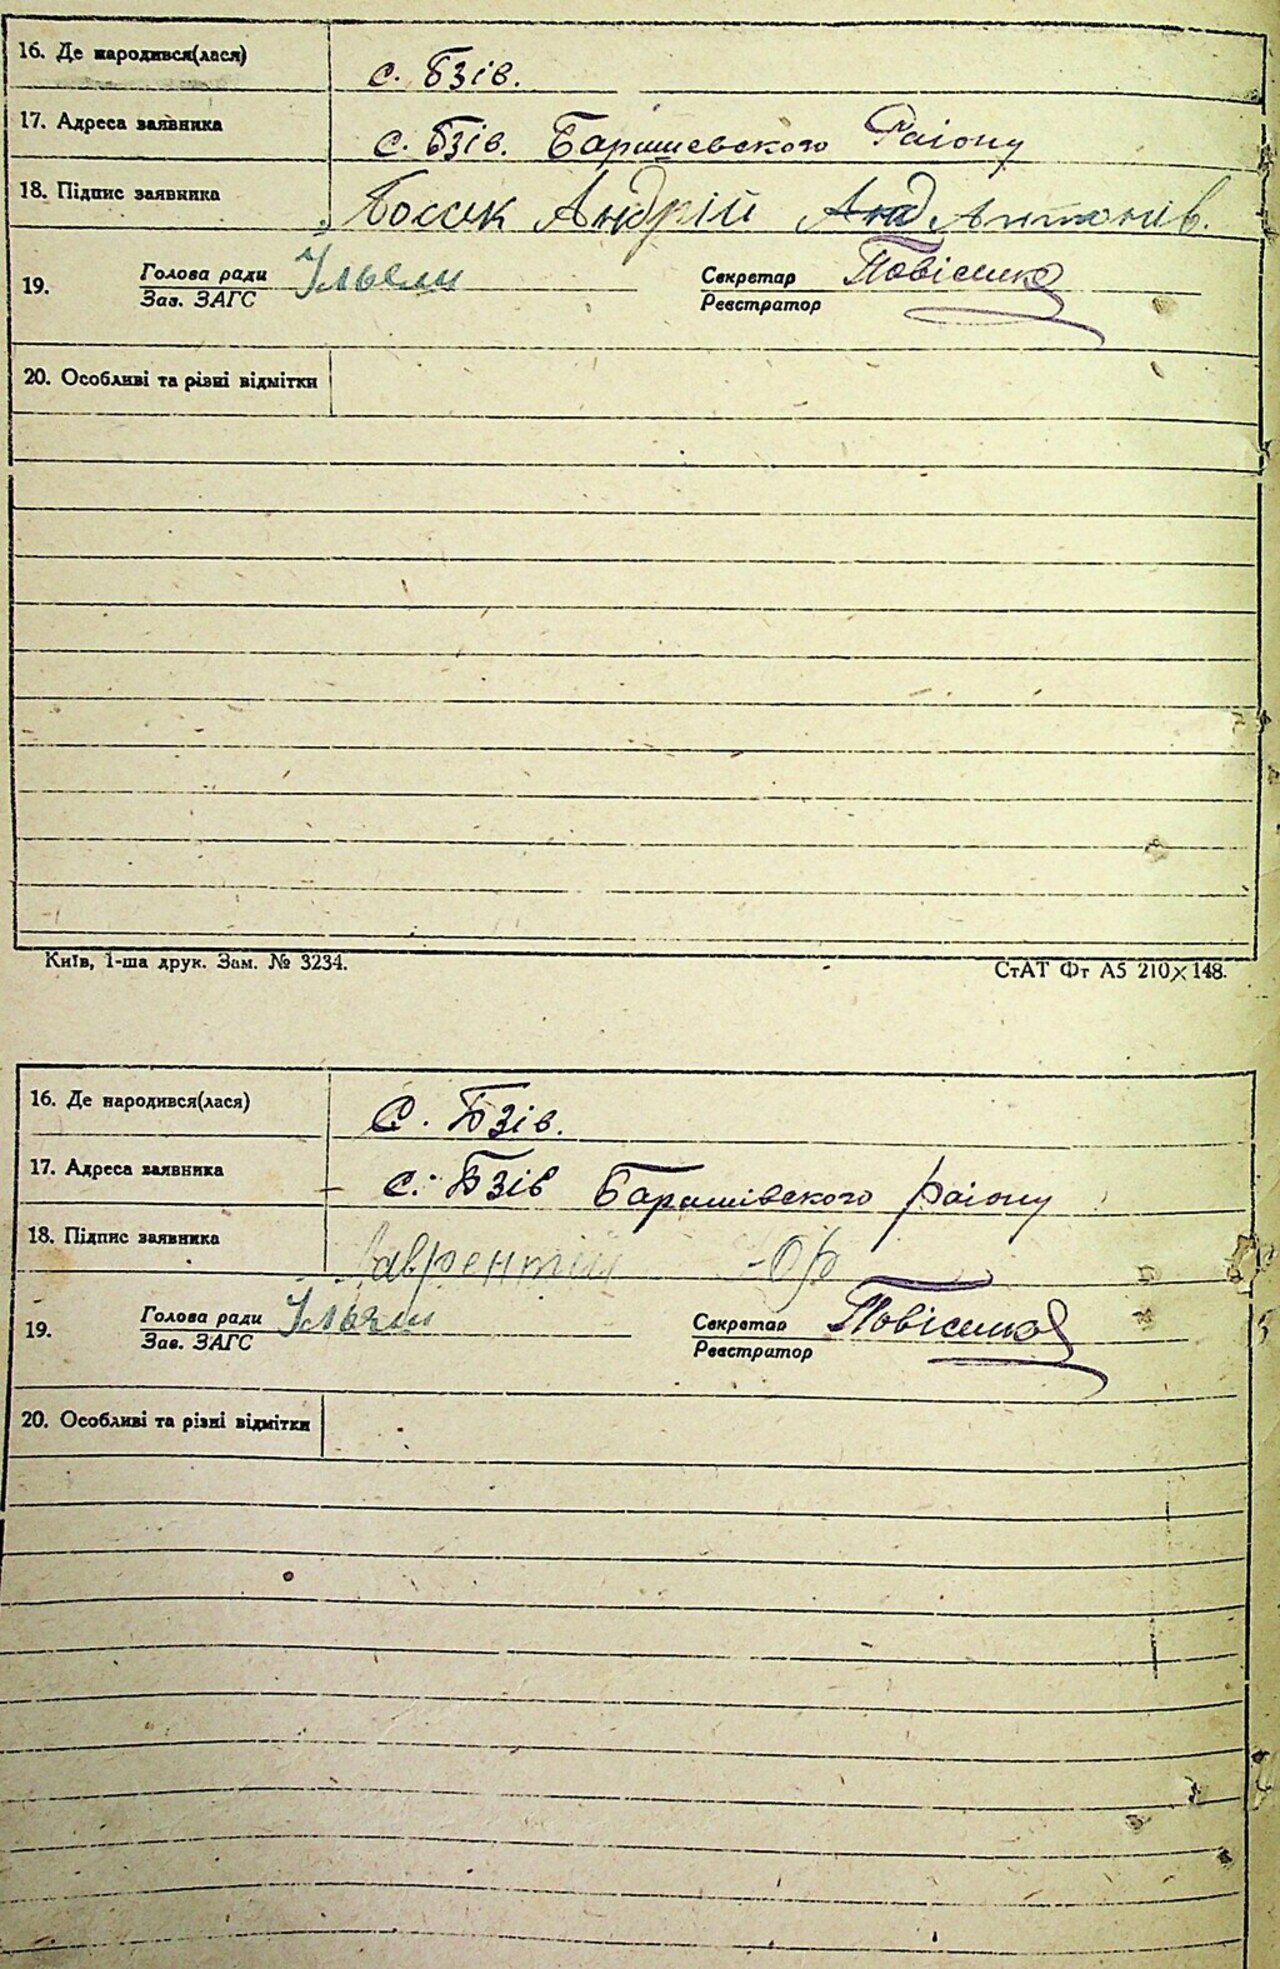 16. Де народився(лася) с. Бзів.
17. Адреса заявника с. Бзів. Баришевского Раіону
18. Підпис заявника Андрій Анд Антонів.
Голова ради Секретар
19.
Зав. ЗАГС Реєстратор
20. Особливі та різні відмітки
Київ, 1-ша друк. Зам. № 3234. СтАТ Фт А5 210×148.
16. Де народився(лася) С. Бзів.
17. Адреса заявника с. Бзів Баришівского раіону
18. Підпис заявника
Голова ради Секретар
19.
Зав. ЗАГС Реєстратор
20. Особливі та різні відмітки